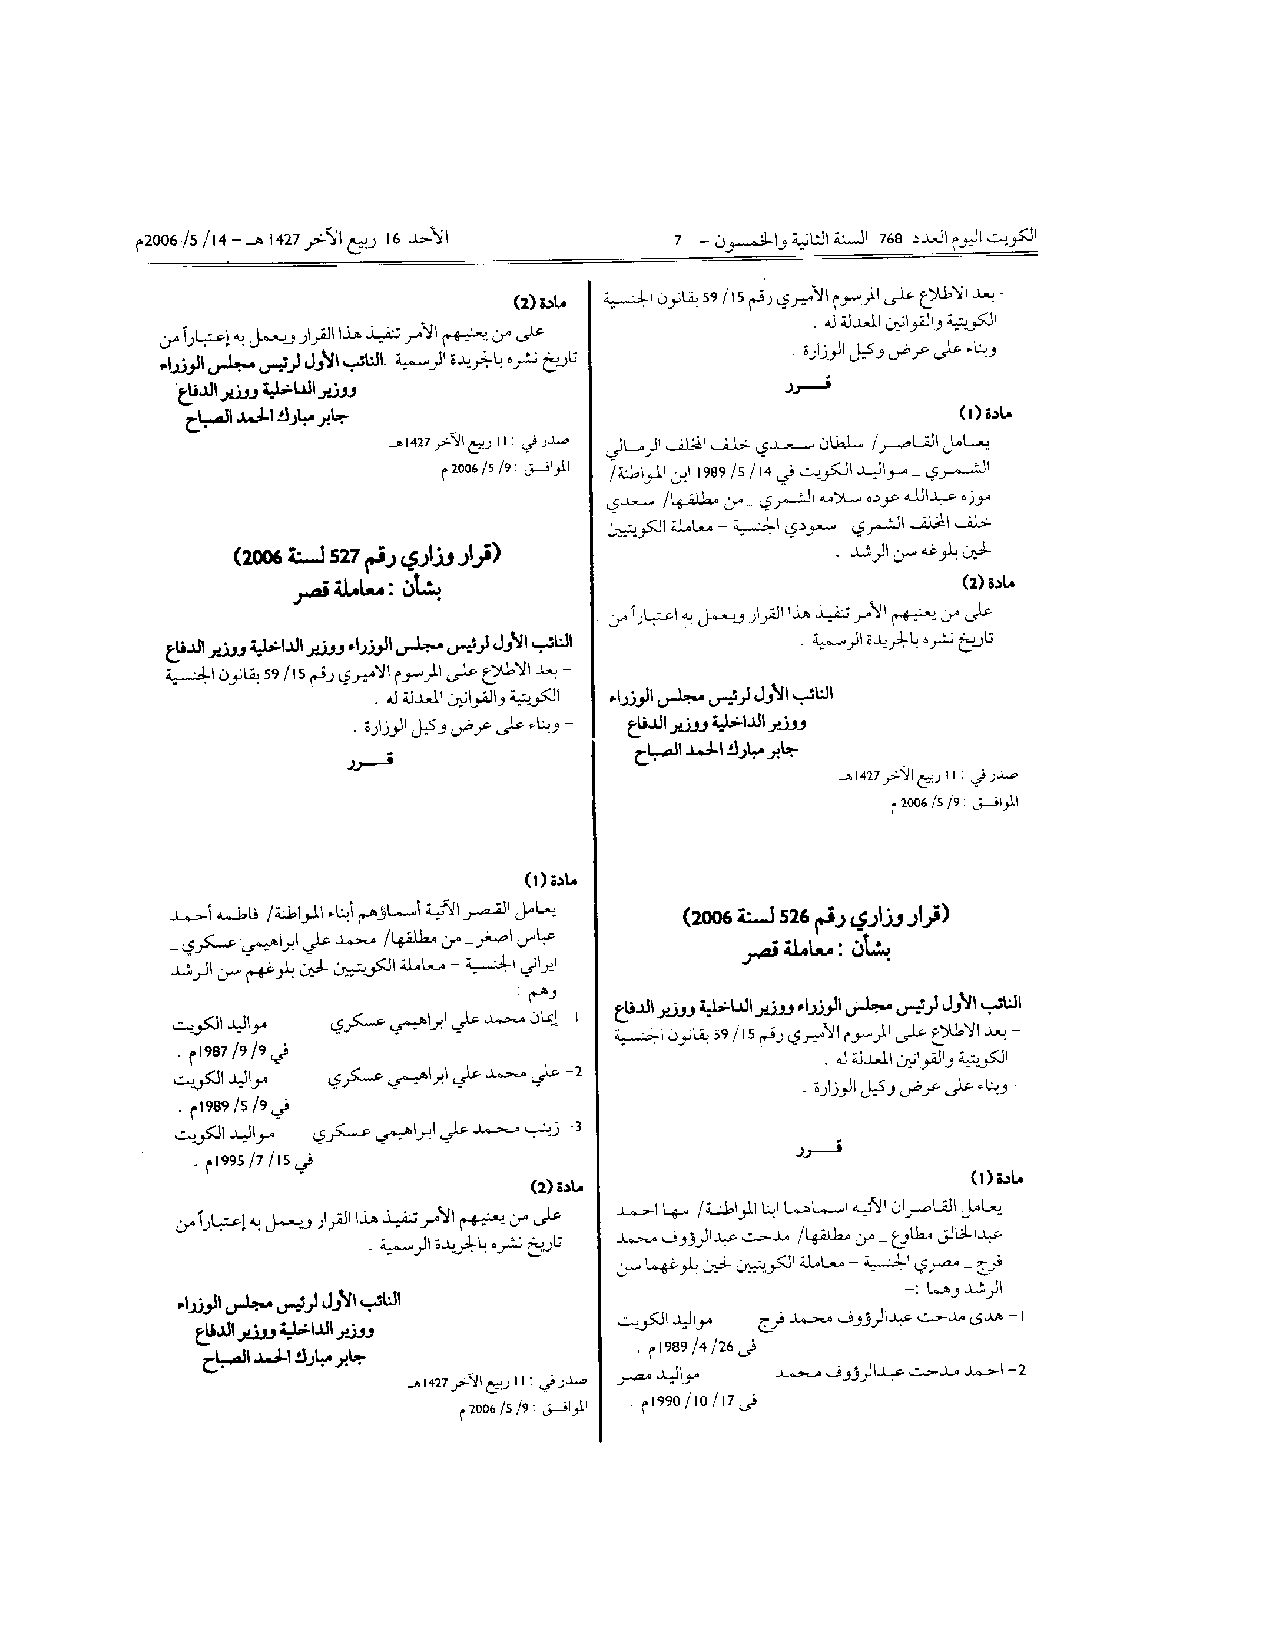 الكويت اليوم العدد 768 السنة الثانية والخمسون – 7
الأحد 16 ربيع الآخر 1427 هـ – 14/ 5/ 2006م
- بعد الاطلاع على المرسوم الأميري رقم 15/ 59 بقانون الجنسية
الكويتية والقوانين المعدلة له .
وبناء على عرض وكيل الوزارة .
قـــرر
مادة (1)
يعامل القاصر/ سلطان سعدي خلف المخلف الرمالي
الشمري _ مواليد الكويت في 14/ 5/ 1989 ابن المواطنة/
موزه عبدالله عوده سلامه الشمري _ من مطلقها/ سعدي
خلف المخلف الشمري سعودي الجنسية – معاملة الكويتيين
لحين بلوغه سن الرشد .
مادة (2)
على من يعنيهم الأمر تنفيذ هذا القرار ويعمل به اعتباراً من
تاريخ نشره بالجريدة الرسمية .
النائب الأول لرئيس مجلس الوزراء
ووزير الداخلية ووزير الدفاع
جابر مبارك الحمد الصباح
صدر في : 11 ربيع الآخر 1427هـ
الموافق : 9/ 5/ 2006 م
(قرار وزاري رقم 526 لسنة 2006)
بشأن : معاملة قصر
النائب الأول لرئيس مجلس الوزراء ووزير الداخلية ووزير الدفاع
– بعد الاطلاع على المرسوم الأميري رقم 15/ 59 بقانون الجنسية
الكويتية والقوانين المعدلة له .
- وبناء على عرض وكيل الوزارة .
قـــرر
مادة (1)
يعامل القاصران الآتيه اسماهما ابنا المواطنة/ سها احمد
عبدالخالق مطاوع _ من مطلقها/ مدحت عبدالرؤوف محمد
فرج _ مصري الجنسية – معاملة الكويتيين لحين بلوغهما سن
الرشد وهما :-
1– هدى مدحت عبدالرؤوف محمد فرج مواليد الكويت
في 26/ 4/ 1989م .
2– احمد مدحت عبدالرؤوف محمد مواليد مصر
في 17/ 10/ 1990م .
مادة (2)
على من يعنيهم الأمر تنفيذ هذا القرار ويعمل به إعتباراً من
تاريخ نشره بالجريدة الرسمية . النائب الأول لرئيس مجلس الوزراء
ووزير الداخلية ووزير الدفاع
جابر مبارك الحمد الصباح
صدر في : 11 ربيع الآخر 1427هـ
الموافق : 9/ 5/ 2006 م
(قرار وزاري رقم 527 لسنة 2006)
بشأن : معاملة قصر
النائب الأول لرئيس مجلس الوزراء ووزير الداخلية ووزير الدفاع
– بعد الاطلاع على المرسوم الاميري رقم 15/ 59 بقانون الجنسية
الكويتية والقوانين المعدلة له .
– وبناء على عرض وكيل الوزارة .
قـــرر
مادة (1)
يعامل القصر الآتية أسماؤهم أبناء المواطنة/ فاطمه أحمد
عباس اصغر _ من مطلقها/ محمد علي ابراهيمي عسكري _
ايراني الجنسية – معاملة الكويتيين لحين بلوغهم سن الرشد
وهم :
1 إيمان محمد علي ابراهيمي عسكري مواليد الكويت
في 9/ 9/ 1987م .
2– علي محمد علي ابراهيمي عسكري مواليد الكويت
في 9/ 5/ 1989م .
3- زينب محمد علي ابراهيمي عسكري مواليد الكويت
في 15/ 7/ 1995م .
مادة (2)
على من يعنيهم الأمر تنفيذ هذا القرار ويعمل به إعتباراً من
تاريخ نشره بالجريدة الرسمية .
النائب الأول لرئيس مجلس الوزراء
ووزير الداخلية ووزير الدفاع
جابر مبارك الحمد الصباح
صدر في : 11 ربيع الآخر 1427هـ
الموافق : 9/ 5/ 2006 م